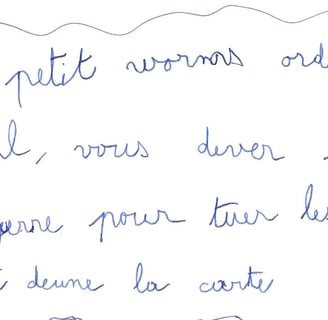 petit worms ord
l, vous dever
erre pour tuer les
deune la carte